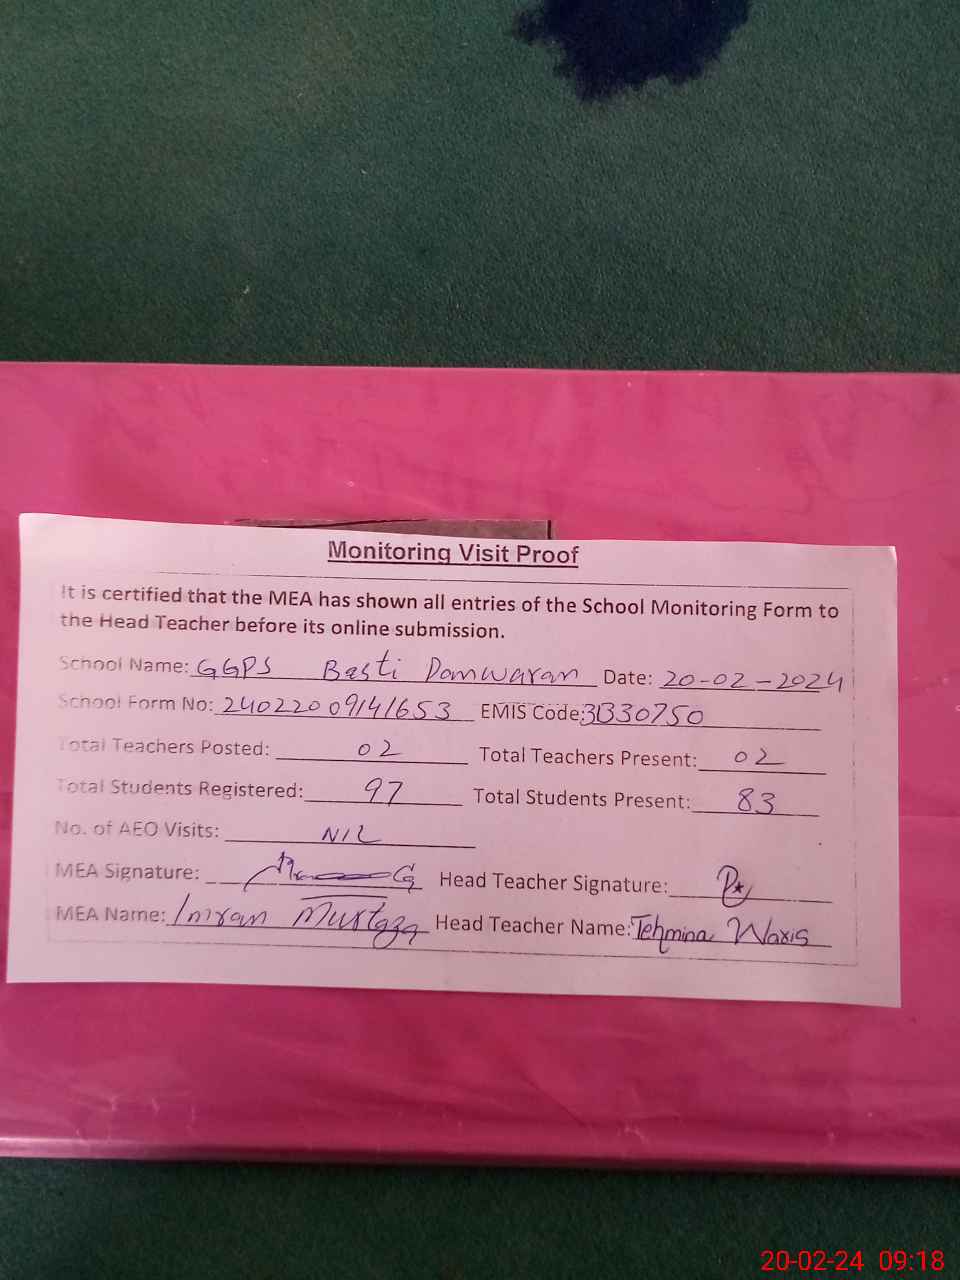 Monitoring Visit Proof
It is certified that the MEA has shown all entries of the School Monitoring Form to
the Head Teacher before its online submission.
School Name: GGPS Basti Damwaran Date: 20-02-2024
School Form No: 24022009141653 EMIS Code: 31330750
Total Teachers Posted: 02 Total Teachers Present: 02
Total Students Registered: 97 Total Students Present: 83
No. of AEO Visits: NIL
MEA Signature: Head Teacher Signature:
MEA Name: Imran Murtaza Head Teacher Name: Tehmina Waris
20-02-24 09:18